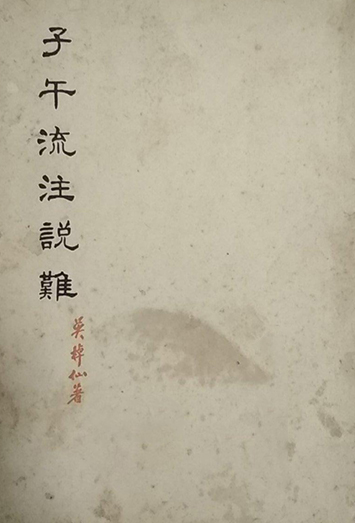 子午流注説難
吳棹仙著